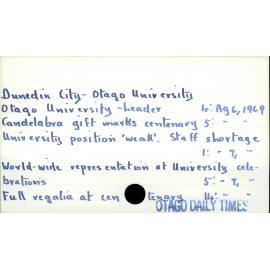 Dunedin City - Otago University
Otago University - header 4: Ag 6, 1969
Candelabra gift marks centenary 5: " "
University position 'weak'. Staff shortage
1: " 7, "
World-wide representation at University cele-
brations 5: " 7, "
Full regalia at cen tenary 14: " "
OTAGO DAILY TIMES